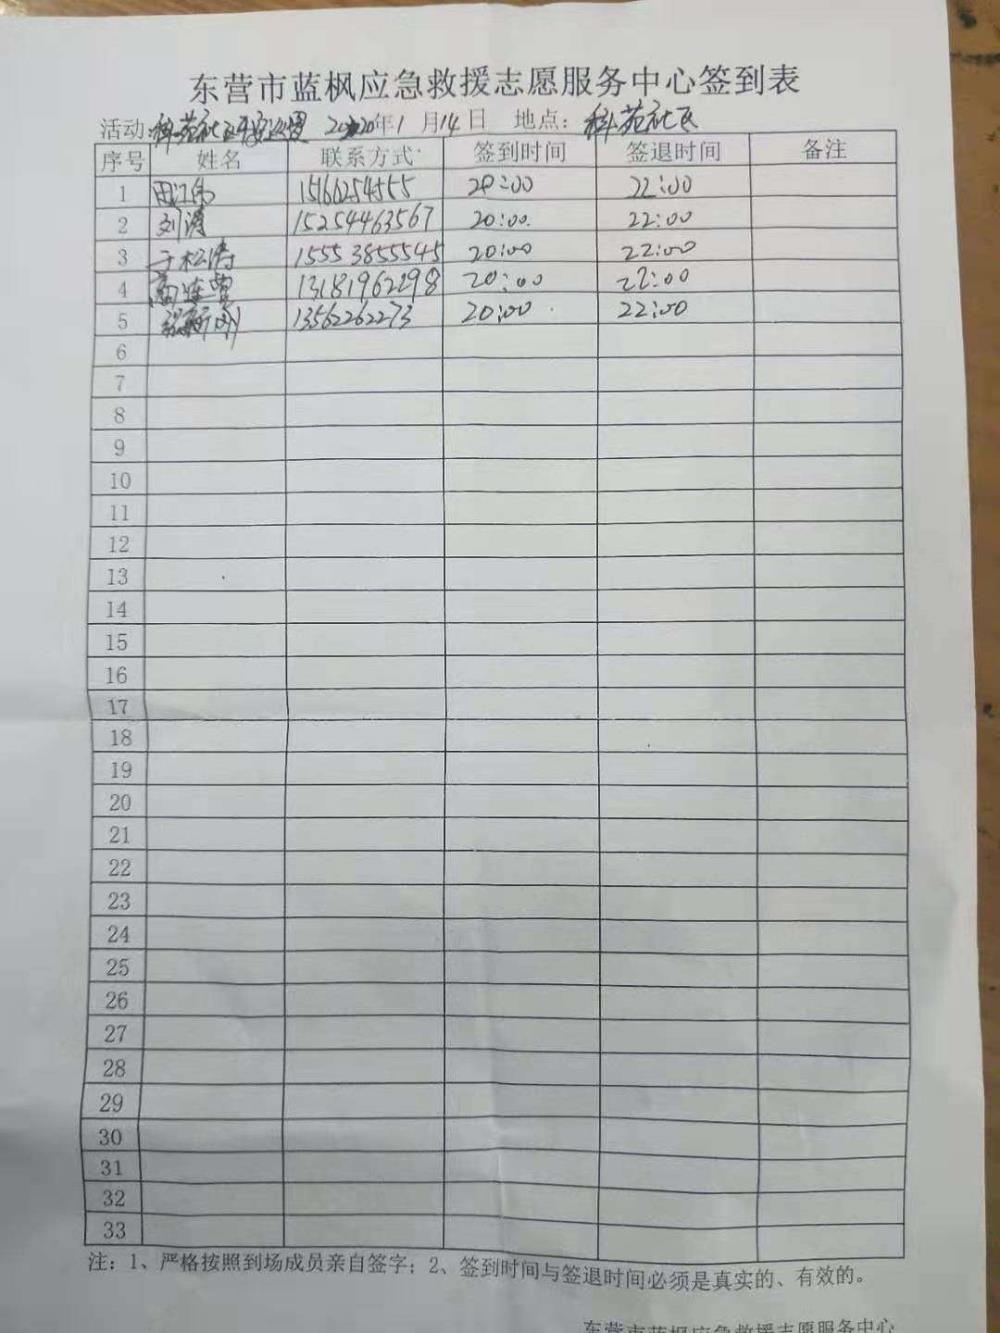 东营市蓝枫应急救援志愿服务中心签到表
活动:科苑社区平安巡逻 2020年1月14日 地点:科苑社区
序号 姓名 联系方式 签到时间 签退时间 备注
1 田江伟 15166254555 20:00 22:00
2 刘涛 15254463567 20:00 22:00
3 于松涛 15553855545 20:00 22:00
4 13181962298 20:00 22:00
5 13562262273 20:00 22:00
6
7
8
9
10
11
12
13
14
15
16
17
18
19
20
21
22
23
24
25
26
27
28
29
30
31
32
33
注:1、严格按照到场成员亲自签字;2、签到时间与签退时间必须是真实的、有效的。
东营市蓝枫应急救援志愿服务中心